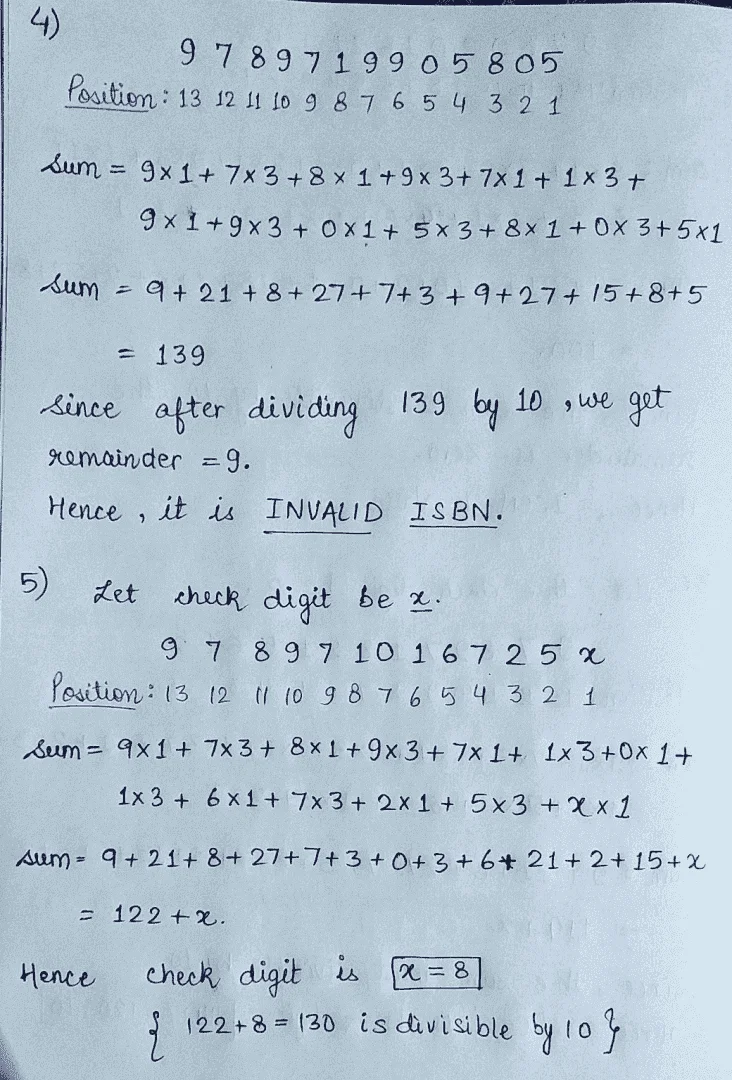 4)
9 7 8 9 7 1 9 9 0 5 8 0 5
Position : 13 12 11 10 9 8 7 6 5 4 3 2 1
Sum = 9×1 + 7×3 + 8×1 + 9×3 + 7×1 + 1×3 +
9×1 + 9×3 + 0×1 + 5×3 + 8×1 + 0×3 + 5×1
Sum = 9 + 21 + 8 + 27 + 7 + 3 + 9 + 27 + 15 + 8 + 5
= 139
Since after dividing 139 by 10 , we get
remainder = 9.
Hence , it is INVALID ISBN.
5) Let check digit be x.
9 7 8 9 7 1 0 1 6 7 2 5 x
Position : 13 12 11 10 9 8 7 6 5 4 3 2 1
Sum = 9×1 + 7×3 + 8×1 + 9×3 + 7×1 + 1×3 + 0×1 +
1×3 + 6×1 + 7×3 + 2×1 + 5×3 + x×1
Sum = 9 + 21 + 8 + 27 + 7 + 3 + 0 + 3 + 6 + 21 + 2 + 15 + x
= 122 + x.
Hence check digit is x = 8
{ 122 + 8 = 130 is divisible by 10 }